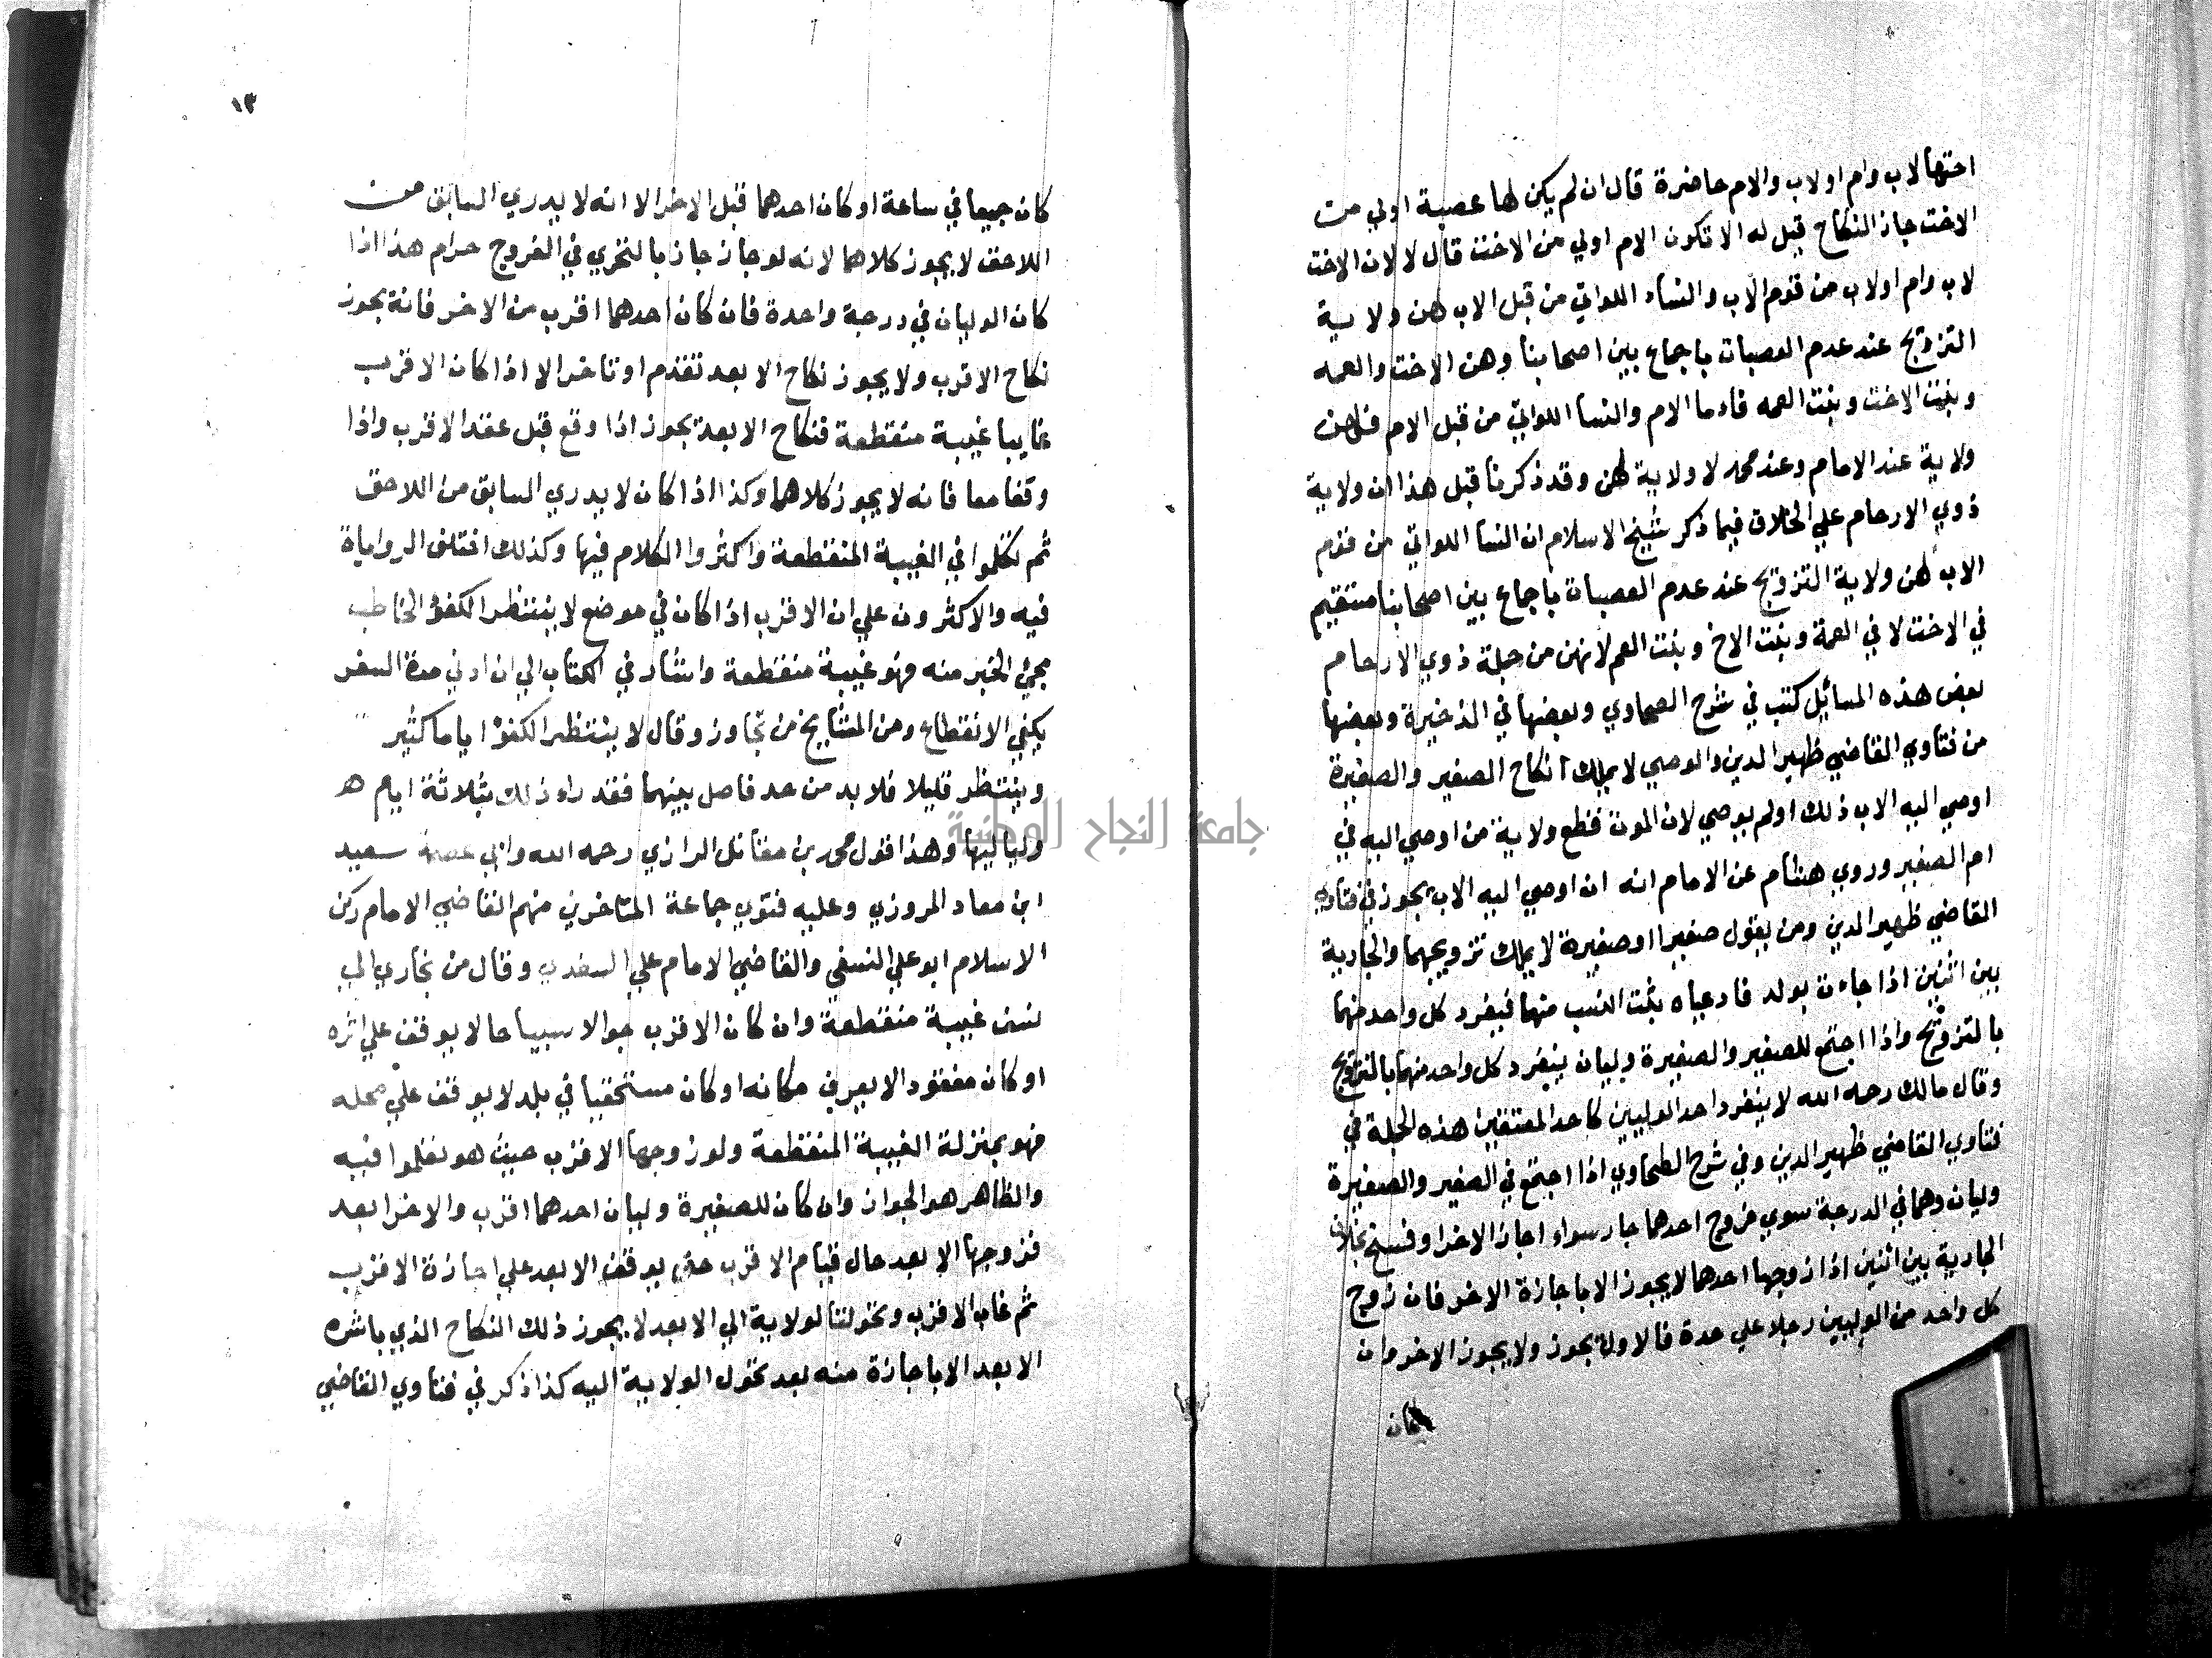 احتها لاب وام او لاب والام حاضرة قال ان لم يكن لها عصبة اولي من
الاخت جاز النكاح قيل له الا تكون الام اولي من الاخت قال لا لان الاخت
لاب وام او لاب من قوم الاب والنساء اللواتي من قبل الاب هن ولاية
التزويج عند عدم العصبات باجماع بين اصحابنا وهن الاخت والعمه
وبنت الاخت وبنت العمه فاما الام والنسا اللواتي من قبل الام فلهن
ولاية عند الامام وعند محمد لا ولاية لهن وقد ذكرنا قبل هذا ان ولاية
ذوي الارحام علي الخلاف فيما ذكر شيخ الاسلام ان النسا اللواتي من قوم
الاب لهن ولاية التزويج عند عدم العصبات باجماع بين اصحابنا مستقيم
في الاخت لا في العمة وبنت الاخ وبنت العم لانهن من جملة ذوي الارحام
بعض هذه المسائل كتب في شرح الصحاوي وبعضها في الذخيرة وبعضها
من فتاوي القاضي ظهير الدين والوصي لا يملك انكاح الصغير والصغيرة
اوصي اليه الاب ذلك اولم يوصي لان الموت قطع ولاية من اوصي اليه في
ام الصغير وروي هشام عن الامام انه ان اوصي اليه الاب يجوز في فتاوي
القاضي ظهير الدين ومن يعول صغيرا او صغيرة لا يملك تزويجهما والجارية
بين اثنين اذا جاءت بولد فادعياه يثبت النسب منهما فيفرد كل واحد منهما
بالتزويج واذا اجتمع للصغير والصغيرة وليان ينفرد كل واحد منهما بالتزويج
وقال مالك رحمه الله لا ينفرد احد الوليين كاحد المعتقين هذه الجملة في
فتاوي القاضي ظهير الدين وفي شرح الطحاوي اذا اجتمع في الصغير والصغيرة
وليان وهما في الدرجة سوي فزوج احدهما جاز سواء اجاز الاخر او فسخ بخلاف
الجارية بين اثنين اذا زوجها احدهما لا يجوز الا باجازة الاخر فان زوج
كل واحد من الوليين رجلا علي حدة فالاول يجوز ولا يجوز الاخر وان
كان
١٣
كان جميعا في ساعة او كان احدهما قبل الاخر الا انه لا يدري السابق من
اللاحق لا يجوز كلاهما لانه لو جاز جاز بالتحري في الفروج حرام هذا اذا
كان الوليان في درجة واحدة فان كان احدهما اقرب من الاخر فانة يجوز
نكاح الاقرب ولا يجوز نكاح الابعد تقدم او تاخر الا اذا كان الاقرب
غايبا غيبة منقطعة فنكاح الابعد يجوز اذا وقع قبل عقد الاقرب واذا
وقعا معا فانه لا يجوز كلاهما وكذا اذا كان لا يدري السابق من اللاحق
ثم تكلموا في الغيبة المنقطعة واكثروا الكلام فيها وكذلك اختلف الرواياة
فيه والاكثرون علي ان الاقرب اذا كان في موضع لا ينتظر الكفؤ الخاطب
مجئ الخبر منه فهو غيبة منقطعة واشار في الكتاب الي ان ادني مدة السفر
يكفي الانقطاع ومن المشايخ من تجاوز وقال لا ينتظر الكفؤ اياما كثير
وينتظر قليلا فلا بد من حد فاصل بينهما فقدراه ذلك بثلاثة ايام هـ
ولياليها وهذا قول محمد بن مقاتل الرازي رحمه الله وابي عصمة سعيد
ابن معاد المروزي وعليه فتوي جماعة المتاخرين منهم القاضي الامام ركن
الاسلام ابو علي النسفي والقاضي الامام علي السغدي وقال من بخاري الي
نسف غيبة منقطعة وان كان الاقرب جوالا سياحا لا يوقف علي اثره
او كان مفقودا لا يعرف مكانه او كان مستخفيا في بلد لا يوقف علي محله
فهو بمنزلة الغيبة المنقطعة ولو زوجها الاقرب حيث هو تكلموا فيه
والظاهر هو الجواز وان كان للصغيرة وليان احدهما اقرب والاخر ابعد
فزوجها الابعد حال قيام الاقرب حتي يوقف الابعد علي اجازة الاقرب
ثم غاب الاقرب وتحولت الولاية الي الابعد لا يجوز ذلك النكاح الذي باشره
الابعد الا باجازة منه بعد تحول الولاية اليه كذا ذكر في فتاوي القاضي
جامعة النجاح الوطنية